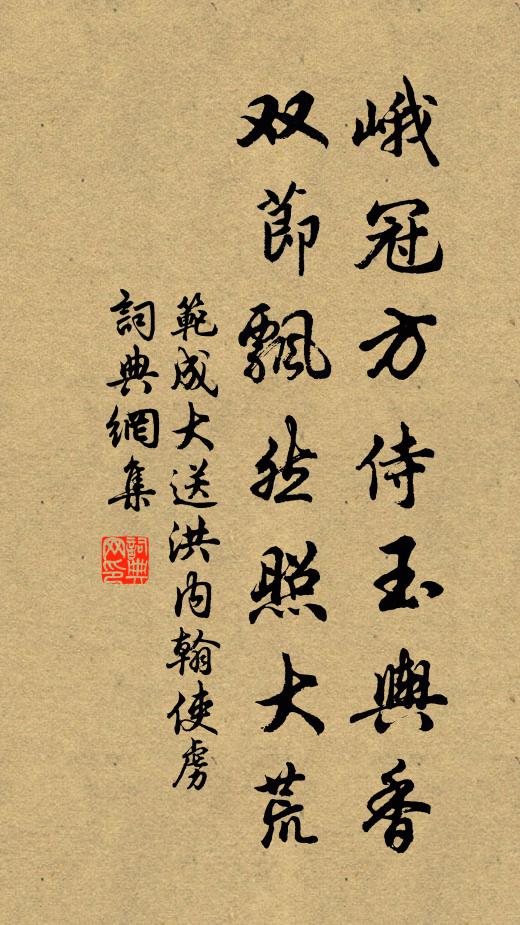 峨冠方侍玉輿香
双節飄然照大荒
範成大送洪内翰使虜
詞典網集
詞典网印